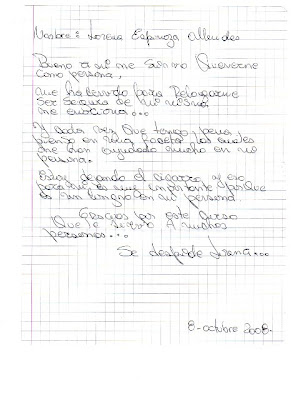 Nombre: Lorena Espinoza Allendes
Bueno a mi me sirvio Quererme
Como persona,
me ha servido para Relogarme
Ser segura de mi misma
me emociona...
Y cada vez que tengo pena
pienso en los cuales
me han ayudado mucho en mi
persona.
Estoy dejando el cigarro y eso
para mi es muy importante porque
es un en mi persona.
Gracias por este curso
Que le sirvio A muchas
personas...
Se despide
8-octubre 2008.